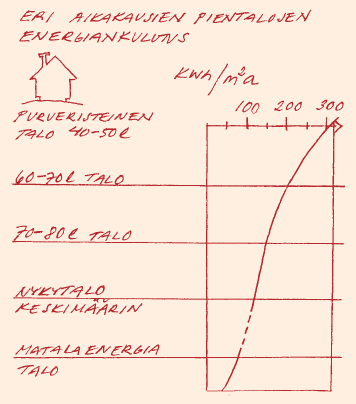 ERI AIKAKAUSIEN PIENTALOJEN
ENERGIANKULUTUS
KWh/m²a
100 200 300
PURUERISTEINEN
TALO 40-50 l
60-70 l TALO
70-80 l TALO
NYKYTALO
KESKIMÄÄRIN
MATALAENERGIA
TALO